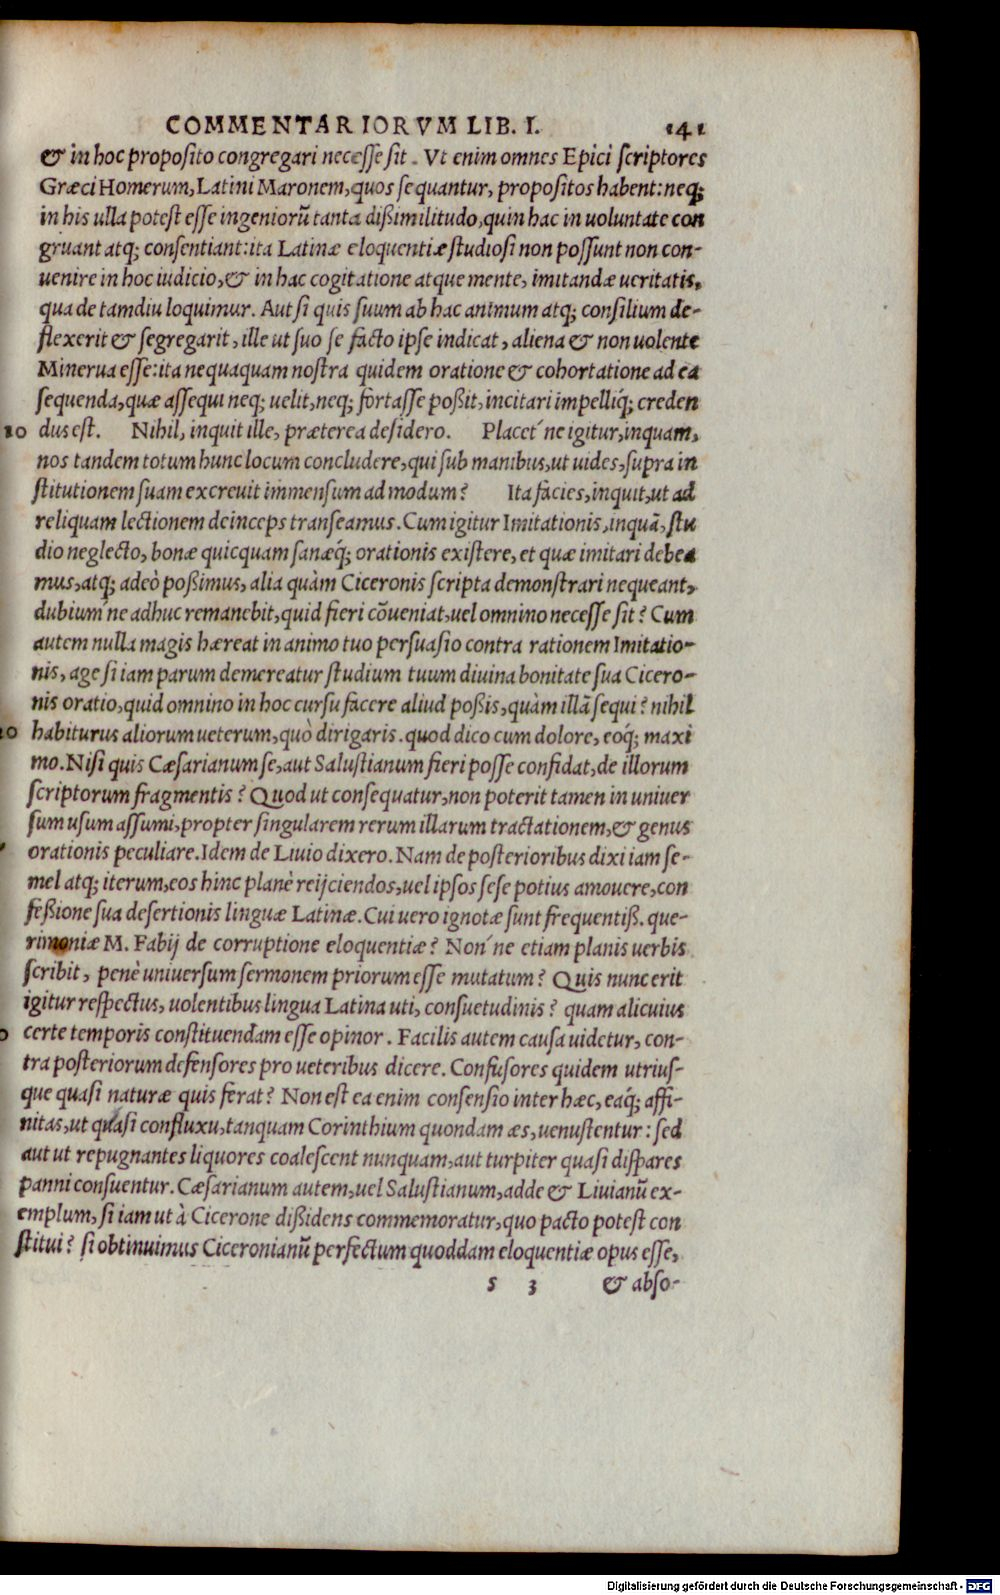 COMMENTARIORVM LIB. I. 141
& in hoc proposito congregari necesse sit. Vt enim omnes Epici scriptores
Græci Homerum, Latini Maronem, quos sequantur, propositos habent: neq;
in his ulla potest esse ingeniorũ tanta dißimilitudo, quin hac in uoluntate con
gruant atq; consentiant: ita Latinæ eloquentiæ studiosi non possunt non con-
uenire in hoc iudicio, & in hac cogitatione atque mente, imitandæ ueritatis,
qua de tamdiu loquimur. Aut si quis suum ab hac animum atq; consilium de-
flexerit & segregarit, ille ut suo se facto ipse indicat, aliena & non uolente
Minerua esse: ita nequaquam nostra quidem oratione & cohortatione ad ea
sequenda, quæ assequi neq; uelit, neq; fortasse poßit, incitari impelliq́; creden
10 dus est. Nihil, inquit ille, præterea desidero. Placet´ne igitur, inquam,
nos tandem totum hunc locum concludere, qui sub manibus, ut uides, supra in
stitutionem suam excreuit immensum ad modum? Ita facies, inquit, ut ad
reliquam lectionem deinceps transeamus. Cum igitur Imitationis, inquã, stu
dio neglecto, bonæ quicquam sanæq́; orationis existere, et quæ imitari debea
mus, atq; adeò poßimus, alia quàm Ciceronis scripta demonstrari nequeant,
dubium´ne adhuc remanebit, quid fieri cõueniat, uel omnino necesse sit? Cum
autem nulla magis hæreat in animo tuo persuasio contra rationem Imitatio-
nis, age si iam parum demereatur studium tuum diuina bonitate sua Cicero-
nis oratio, quid omnino in hoc cursu facere aliud poßis, quàm illã sequi? nihil
20 habiturus aliorum ueterum, quò dirigaris. quod dico cum dolore, eoq́; maxi
mo. Nisi quis Cæsarianum se, aut Salustianum fieri posse confidat, de illorum
scriptorum fragmentis? Quod ut consequatur, non poterit tamen in uniuer
sum usum assumi, propter singularem rerum illarum tractationem, & genus
orationis peculiare. Idem de Liuio dixero. Nam de posterioribus dixi iam se-
mel atq; iterum, eos hinc planè reijciendos, uel ipsos sese potius amouere, con
feßione sua desertionis linguæ Latinæ. Cui uero ignotæ sunt frequentiß. que-
rimoniæ M. Fabij de corruptione eloquentiæ? Non´ne etiam planis uerbis
scribit, penè uniuersum sermonem priorum esse mutatum? Quis nunc erit
igitur respectus, uolentibus lingua Latina uti, consuetudinis? quam alicuius
certe temporis constituendam esse opinor. Facilis autem causa uidetur, con-
tra posteriorum defensores pro ueteribus dicere. Confusores quidem utrius-
que quasi naturæ quis ferat? Non est ea enim consensio inter hæc, eaq́; affi-
nitas, ut quasi confluxu, tanquam Corinthium quondam æs, uenustentur: sed
aut ut repugnantes liquores coalescent nunquam, aut turpiter quasi dispares
panni consuentur. Cæsarianum autem, uel Salustianum, adde & Liuianũ ex-
emplum, si iam ut à Cicerone dißidens commemoratur, quo pacto potest con
stitui? si obtinuimus Ciceronianũ perfectum quoddam eloquentiæ opus esse,
s 3 & abso-
Digitalisierung gefördert durch die Deutsche Forschungsgemeinschaft - DFG